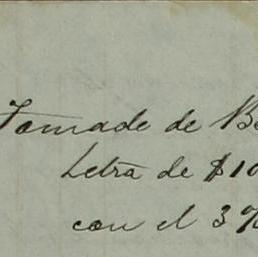 Tomado de B
Letra de $10
con el 3%